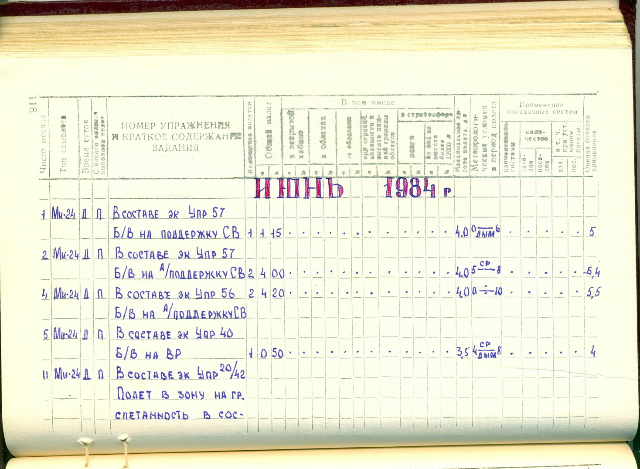 118
В том числе
Применение
посадочных систем
Число месяца
Тип самолета
Время суток
НОМЕР УПРАЖНЕНИЯ
И КРАТКОЕ СОДЕРЖАНИЕ
ЗАДАНИЯ
Количество полетов
Общий налет
в закрытой кабине
в облаках
в стратосфере
всего
количество
ИЮНЬ 1984 г
1 Ми-24 Д П В СОСТАВЕ ЭК УПР 57
Б/В НА ПОДДЕРЖКУ СВ 1 1 15 4,0 0 ДЫМ 6 5
2 Ми-24 Д П В СОСТАВЕ ЭК УПР 57
Б/В НА А/ПОДДЕРЖКУ СВ 2 4 00 4,0 5 СР 8 5,4
4 Ми-24 Д П В СОСТАВЕ ЭК УПР 56 2 4 20 4,0 0 ÷ 10 5,5
Б/В НА А/ПОДДЕРЖКУ СВ
5 Ми-24 Д П В СОСТАВЕ ЭК УПР 40
Б/В НА ВР 1 0 50 3,5 4 СР ДЫМ 8 4
11 Ми-24 Д П В СОСТАВЕ ЭК УПР 20/42
ПОЛЕТ В ЗОНУ НА ГР.
СЛЕТАННОСТЬ В СОС-